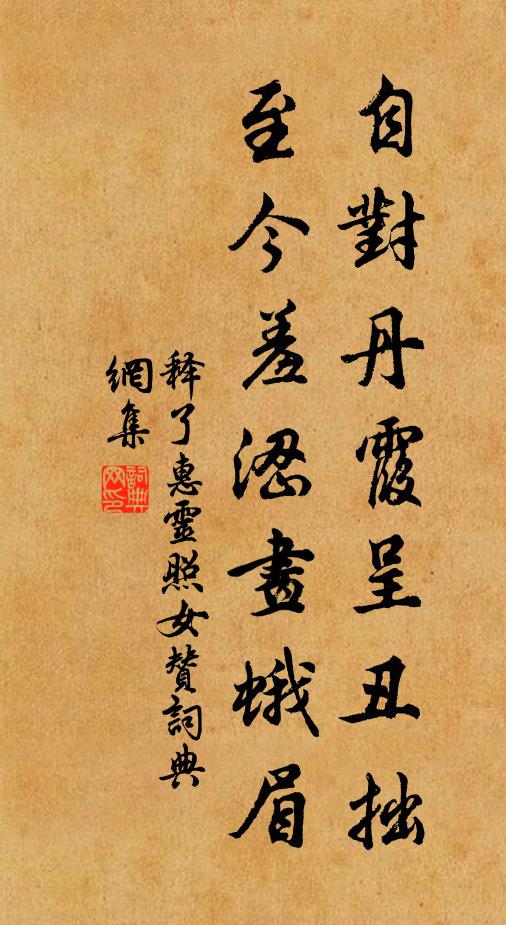 自對丹霞呈丑拙
至今羞澀畫蛾眉
释了惠靈照女贊詞典
網集
詞典
网印